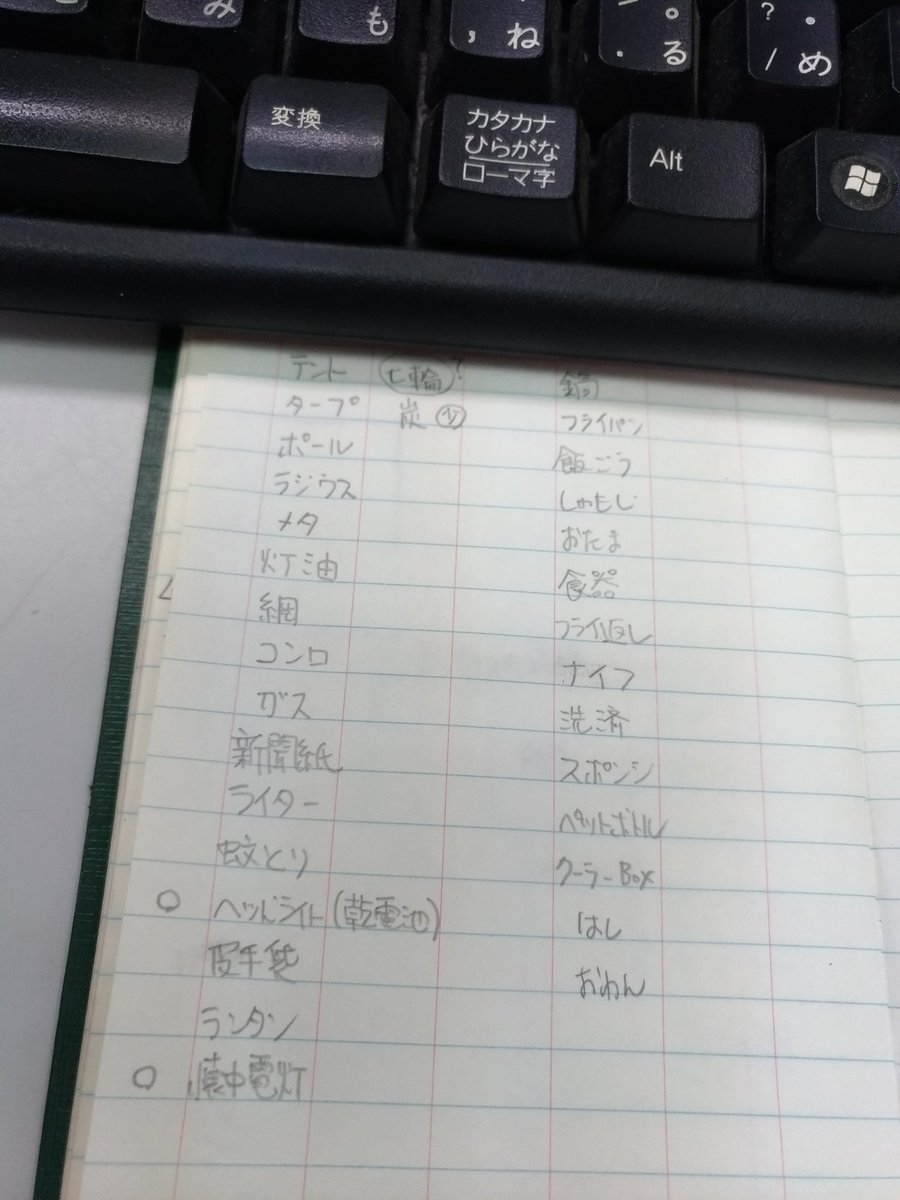 み
も
、 ね
。
. る
? ・
/ め
変換
カタカナ
ひらがな
ローマ字
Alt
テント 七輪?
タープ 炭 少
ポール
ラジウス
メタ
灯油
網
コンロ
ガス
新聞紙
ライター
蚊とり
○ ヘッドライト(乾電池)
皮手袋
ランタン
○ 懐中電灯
鍋
フライパン
飯ごう
しゃもじ
おたま
食器
フライ返し
ナイフ
洗済
スポンジ
ペットボトル
クーラーBox
はし
おわん